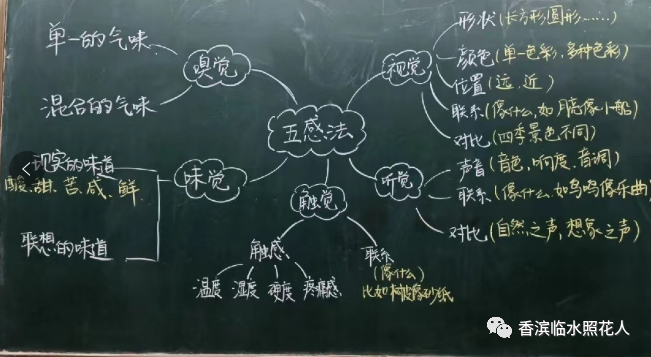 五感法
嗅觉
单一的气味
混合的气味
味觉
现实的味道
酸、甜、苦、咸、鲜
联想的味道
触觉
触感
温度 湿度 硬度 疼痛感
联系
(像什么)
比如树皮像砂纸
视觉
形状(长方形圆形……)
颜色(单一色彩,多种色彩)
位置(远、近)
联系(像什么,如月亮像小船)
对比(四季景色不同)
听觉
声音(音色,响度、音调)
联系(像什么.如鸟鸣像乐曲)
对比(自然之声,想象之声)
香滨临水照花人